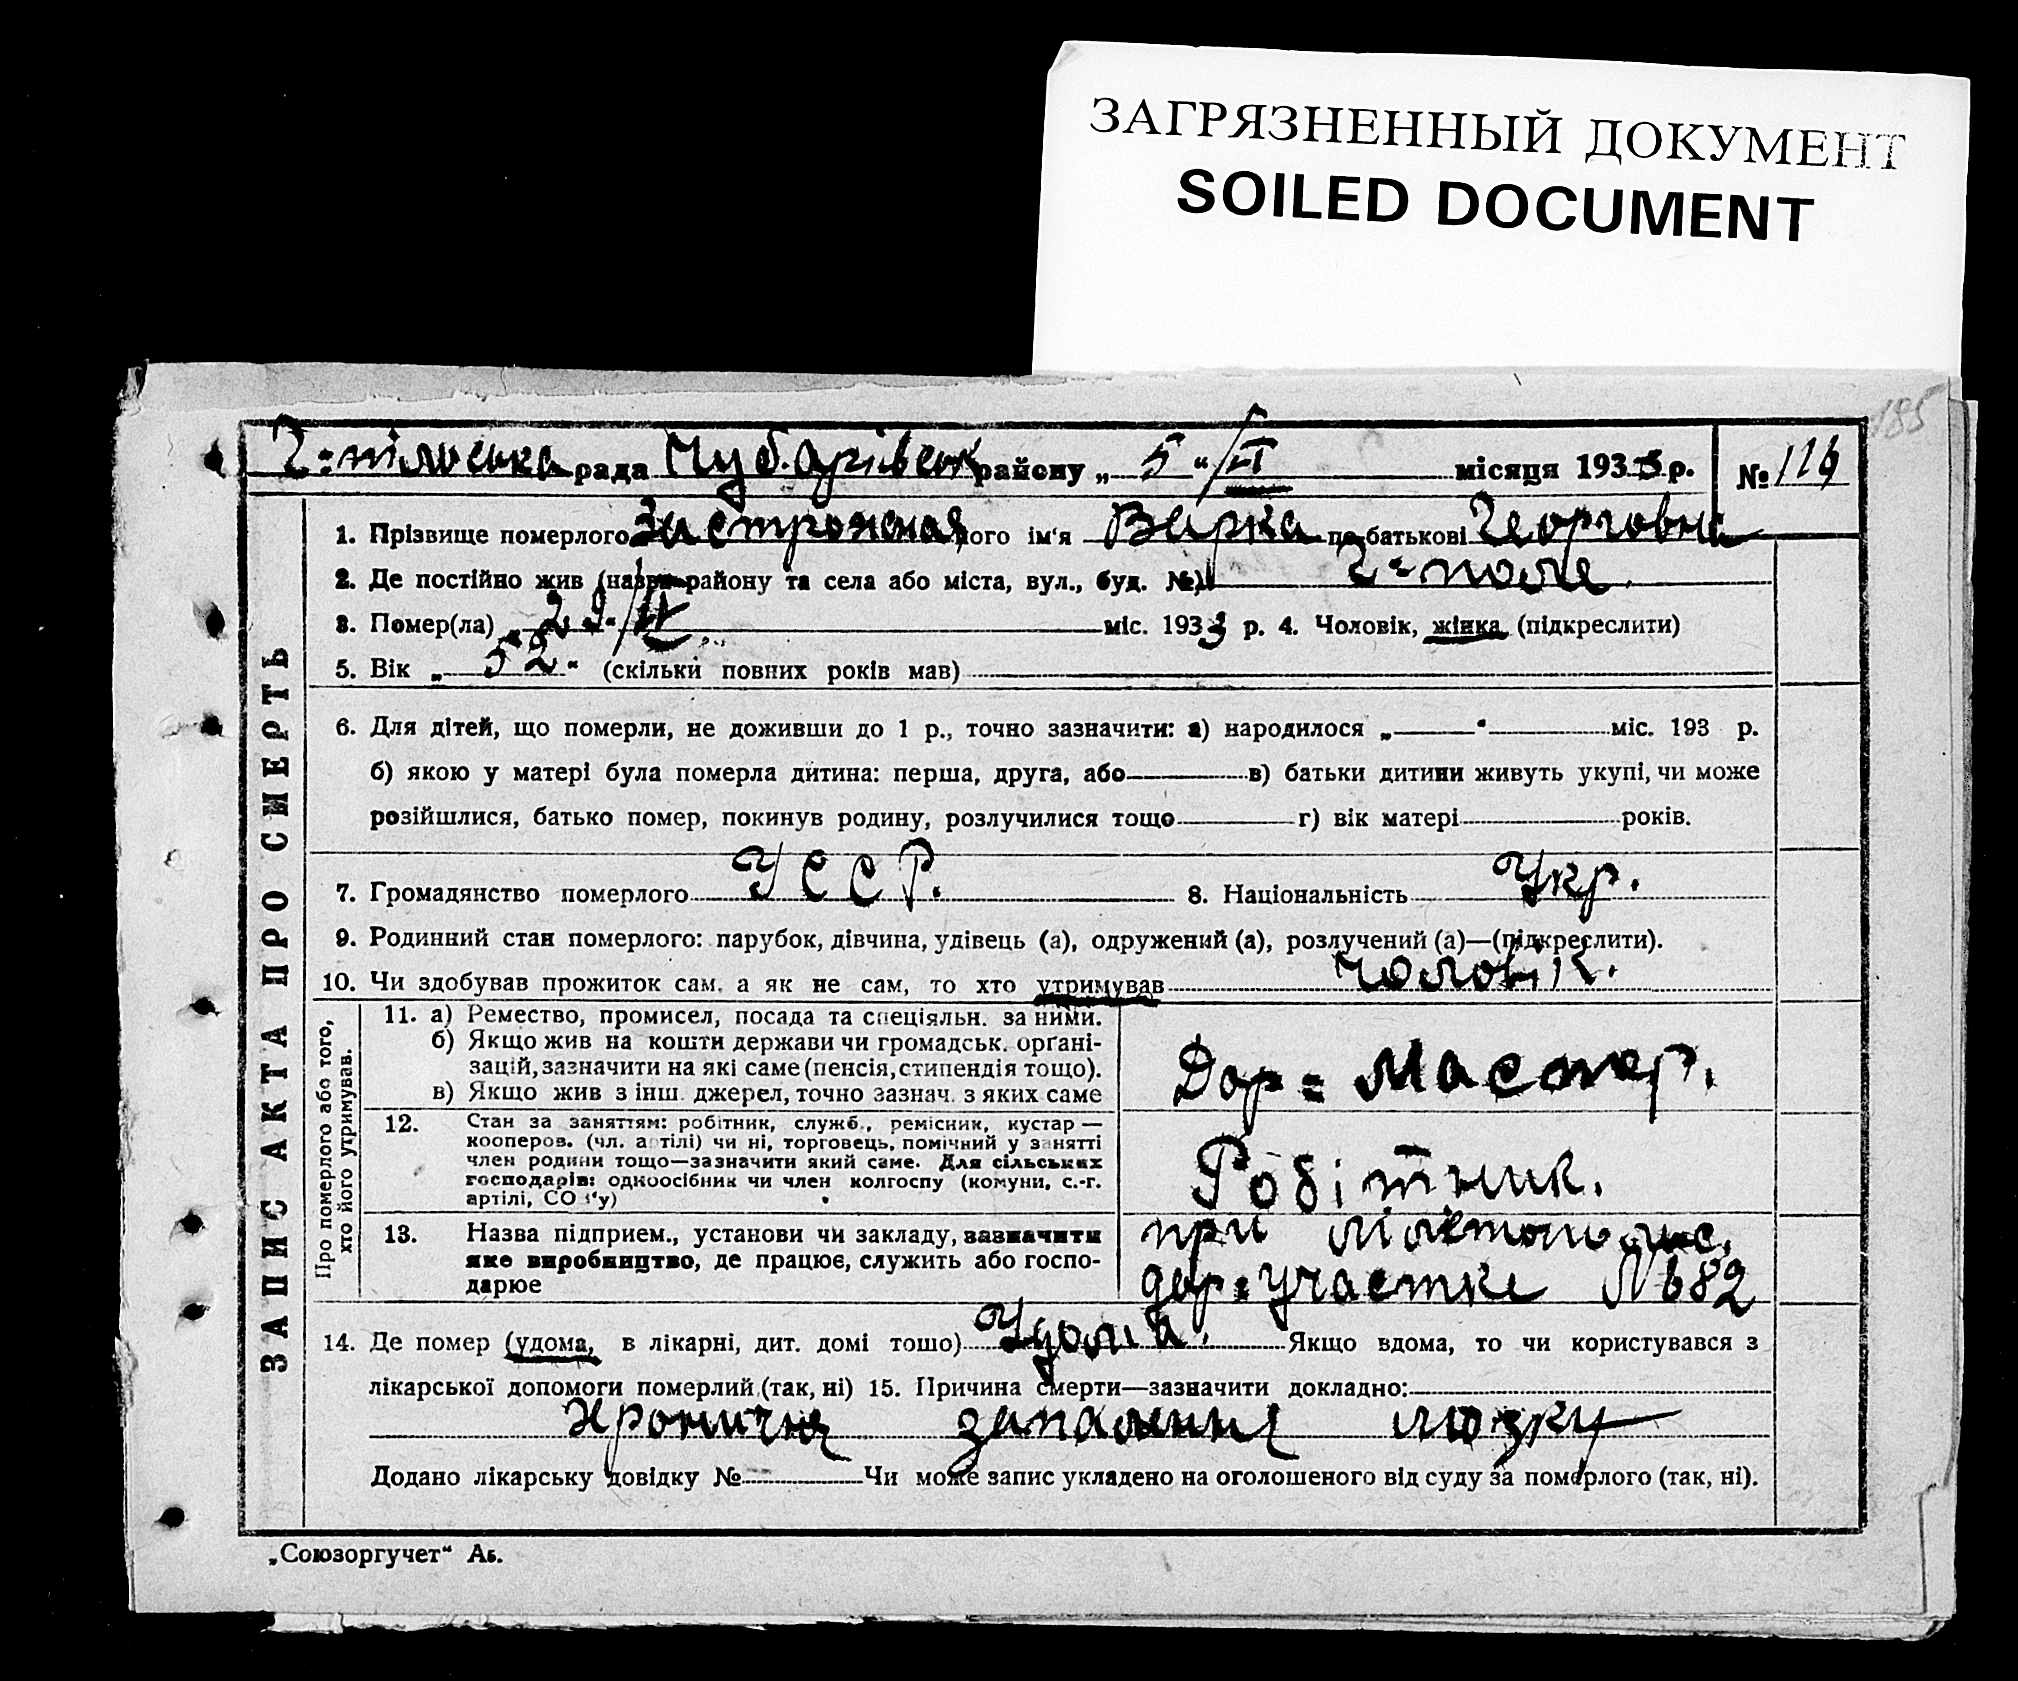 ЗАГРЯЗНЕННЫЙ ДОКУМЕНТ
SOILED DOCUMENT
185
рада Чубарівськ району „ 5 “ місяця 193 3 р. № 116
ЗАПИС АКТА ПРО СМЕРТЬ
1. Прізвище померлого його ім'я Варка по батькові Георговна
2. Де постійно жив (назва району та села або міста, вул., буд. №) Г=поле.
3. Помер(ла) „ 29 “ міс. 193 3 р. 4. Чоловік, жінка (підкреслити)
5. Вік „ 52 “ (скільки повних років мав)
6. Для дітей, що померли, не доживши до 1 р., точно зазначити: а) народилося „ “ міс. 193 р.
б) якою у матері була померла дитина: перша, друга, або в) батьки дитини живуть укупі, чи може
розійшлися, батько помер, покинув родину, розлучилися тощо г) вік матері років.
7. Громадянство померлого УССР. 8. Національність Укр.
9. Родинний стан померлого: парубок, дівчина, удівець (а), одружений (а), розлучений (а)—(підкреслити).
10. Чи здобував прожиток сам, а як не сам, то хто утримував чоловік.
Про померлого або того,
хто його утримував.
11. а) Ремество, промисел, посада та спеціяльн. за ними.
б) Якщо жив на кошти держави чи громадськ. орґані-
зацій, зазначити на які саме (пенсія, стипендія тощо).
в) Якщо жив з інш. джерел, точно зазнач. з яких саме
Дор=Мастер.
12. Стан за заняттям: робітник, служб., ремісник, кустар —
кооперов. (чл. артілі) чи ні, торговець, помічний у занятті
член родини тощо—зазначити який саме. Для сільських
господарів: одноосібник чи член колгоспу (комуни, с.-г.
артілі, СО у)
Робітник.
13. Назва підприєм., установи чи закладу, зазначити
яке виробництво, де працює, служить або госпо-
дарює
при
дор=участке №82
14. Де помер (удома, в лікарні, дит. домі тошо) Удома. Якщо вдома, то чи користувався з
лікарської допомоги померлий (так, ні) 15. Причина смерти—зазначити докладно:
запалення мозку
Додано лікарську довідку № Чи може запис укладено на оголошеного від суду за померлого (так, ні).
„Союзоргучет“ Аб.